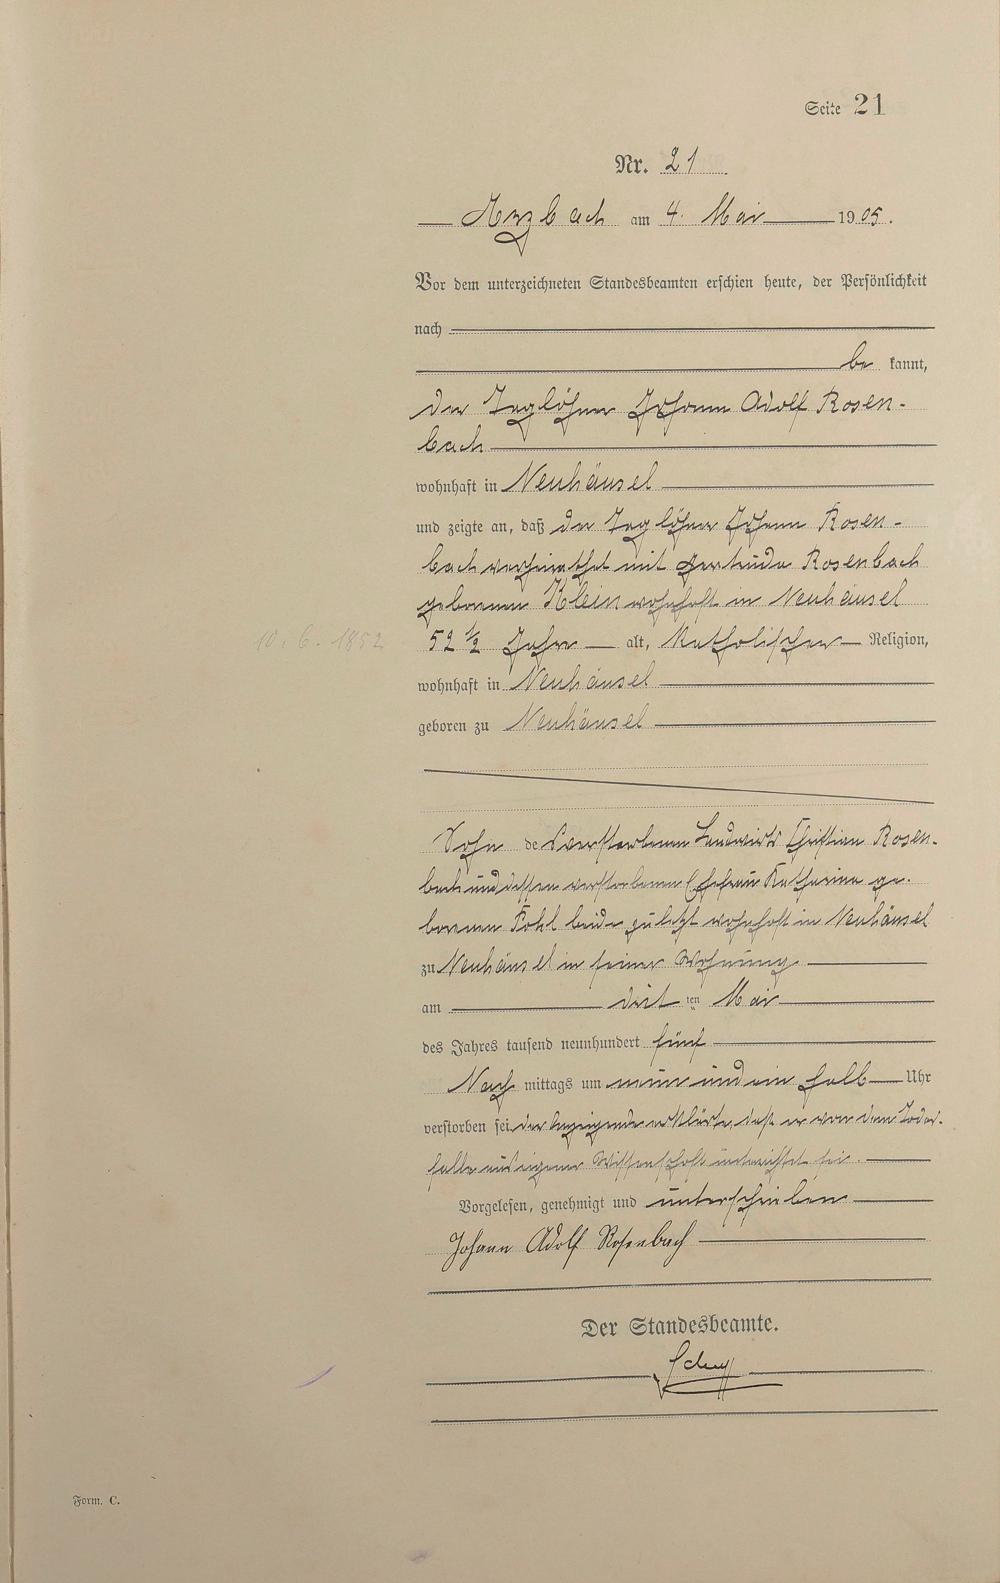 Seite 21
Nr. 21
Arzbach am 4. Mai 1905.
Vor dem unterzeichneten Standesbeamten erschien heute, der Persönlichkeit
nach
be kannt,
der Taglöhner Johann Adolf Rosen-
bach
wohnhaft in Neuhäusel
und zeigte an, daß der Taglöhner Johann Rosen-
bach verheirathet mit Gertrude Rosenbach
geborenen Klein wohnhaft in Neuhäusel
10. 6. 1852
52 1/2 Jahre alt, Katholischer Religion,
wohnhaft in Neuhäusel
geboren zu Neuhäusel
Sohn des verstorbenen Landwirts Christian Rosen-
bach und dessen verstorbenen Ehefrau Katharina ge-
borenen Pohl beide zuletzt wohnhaft in Neuhäusel
zu Neuhäusel in seiner Wohnung
am drit ten Mai
des Jahres tausend neunhundert fünf
Nach mittags um neun und ein halb Uhr
verstorben sei, der Anzeigende erklärte, daß er von dem Todes-
falle aus eigener Wissenschaft unterrichtet sei.
Vorgelesen, genehmigt und unterschrieben
Johann Adolf Rosenbach
Der Standesbeamte.
Form. C.